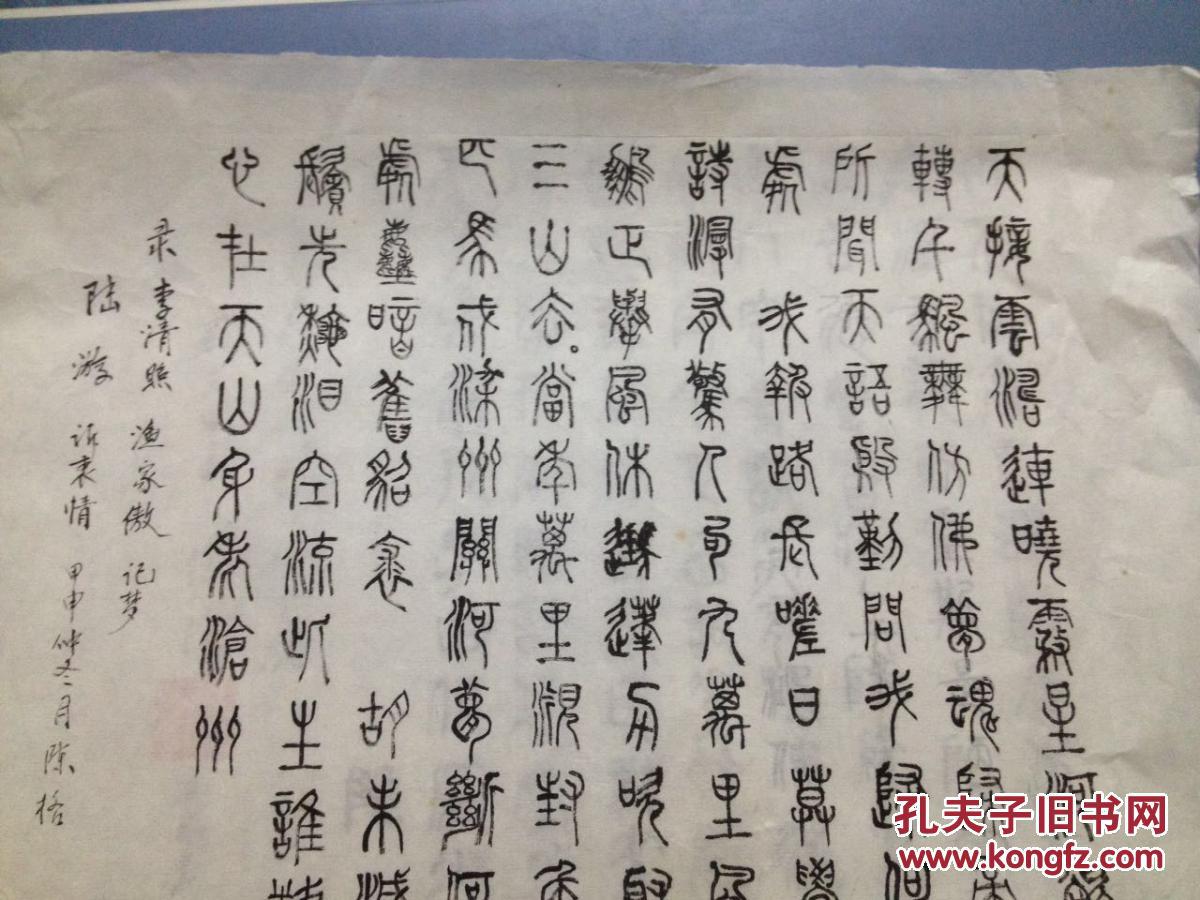 天接雲濤連曉霧星河欲
轉千颿舞仿佛夢魂歸帝
所聞天語殷勤問我歸何
處 我報路長嗟日暮學
詩謾有驚人句九萬里風
鵬正舉風休蓬舟吹取
三山去。當年萬里覓封侯
匹馬戍梁州關河夢斷何
處塵暗舊貂裘 胡未滅
鬢先秋泪空流此生誰料
心在天山身老滄州
录李清照 渔家傲 记梦
陆游 诉衷情 甲申仲冬月陈格
孔夫子旧书网
www.kongfz.com